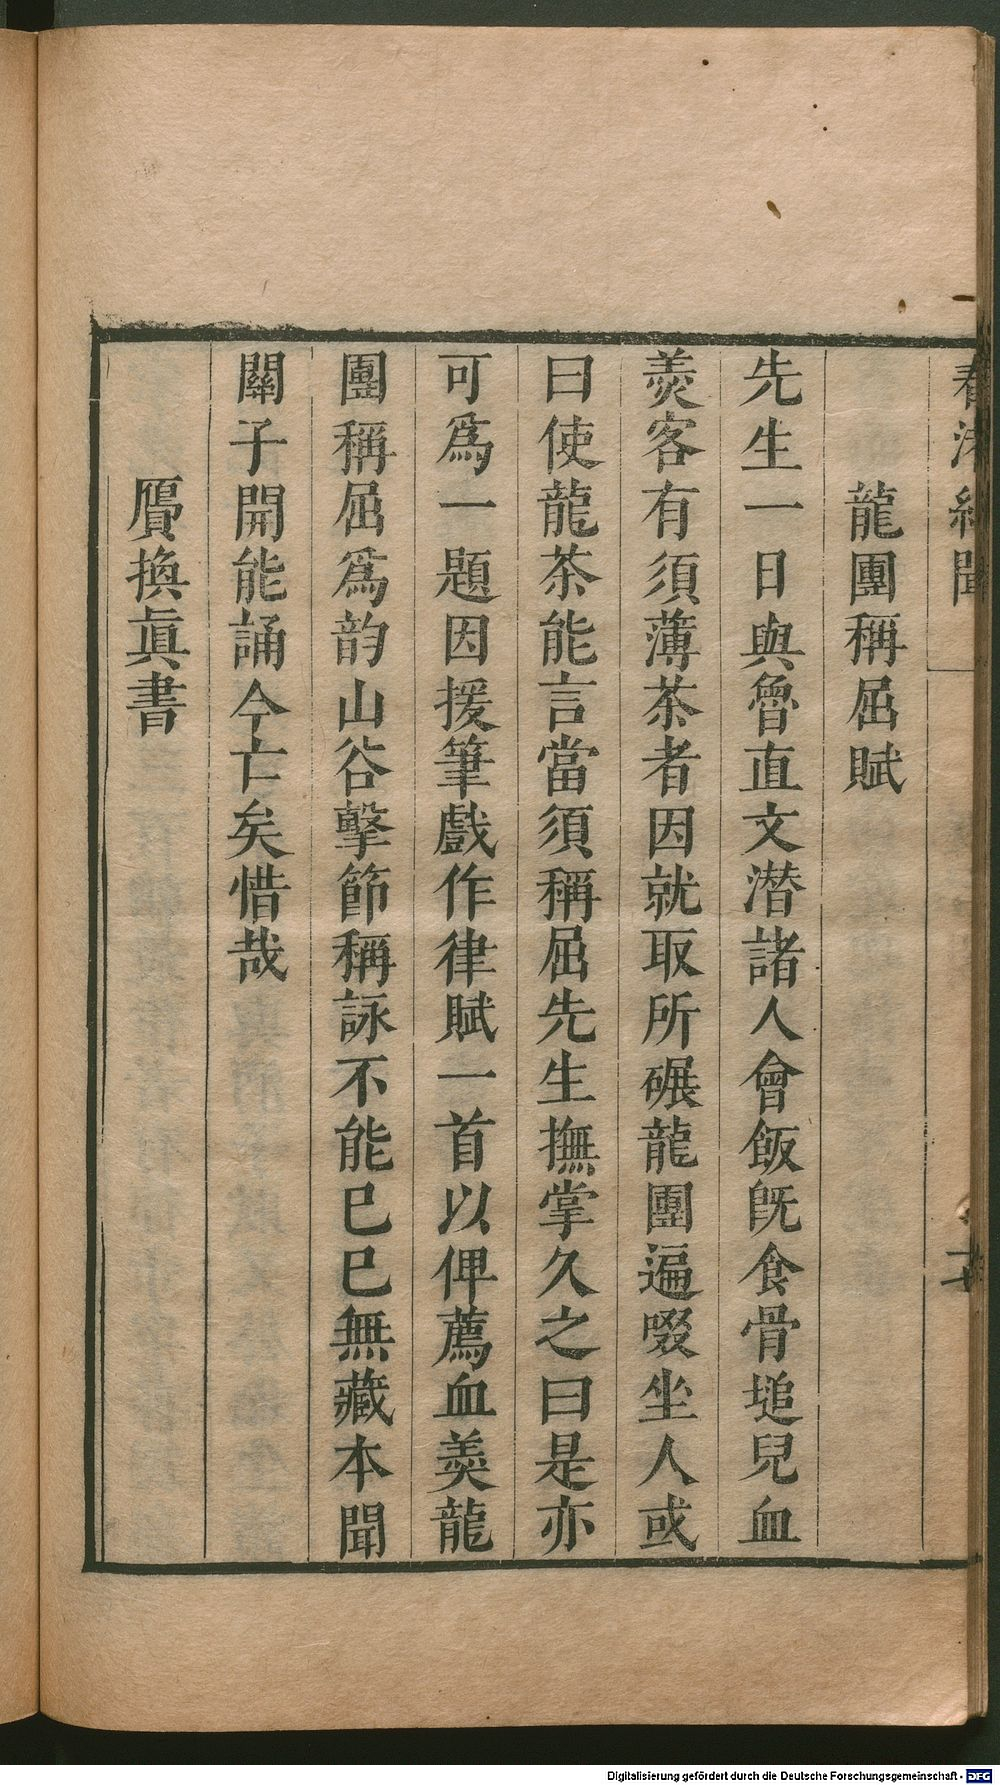 春渚紀聞
龍團稱屈賦
先生一日與魯直文潜諸人會飯旣食骨塠兒血
羮客有須薄茶者因就取所碾龍團遍啜坐人或
曰使龍茶能言當須稱屈先生撫掌久之曰是亦
可爲一題因援筆戲作律賦一首以俾薦血羮龍
團稱屈爲韵山谷擊節稱詠不能已已無藏本聞
關子開能誦今亡矣惜哉
贋換眞書
Digitalisierung gefördert durch die Deutsche Forschungsgemeinschaft - DFG